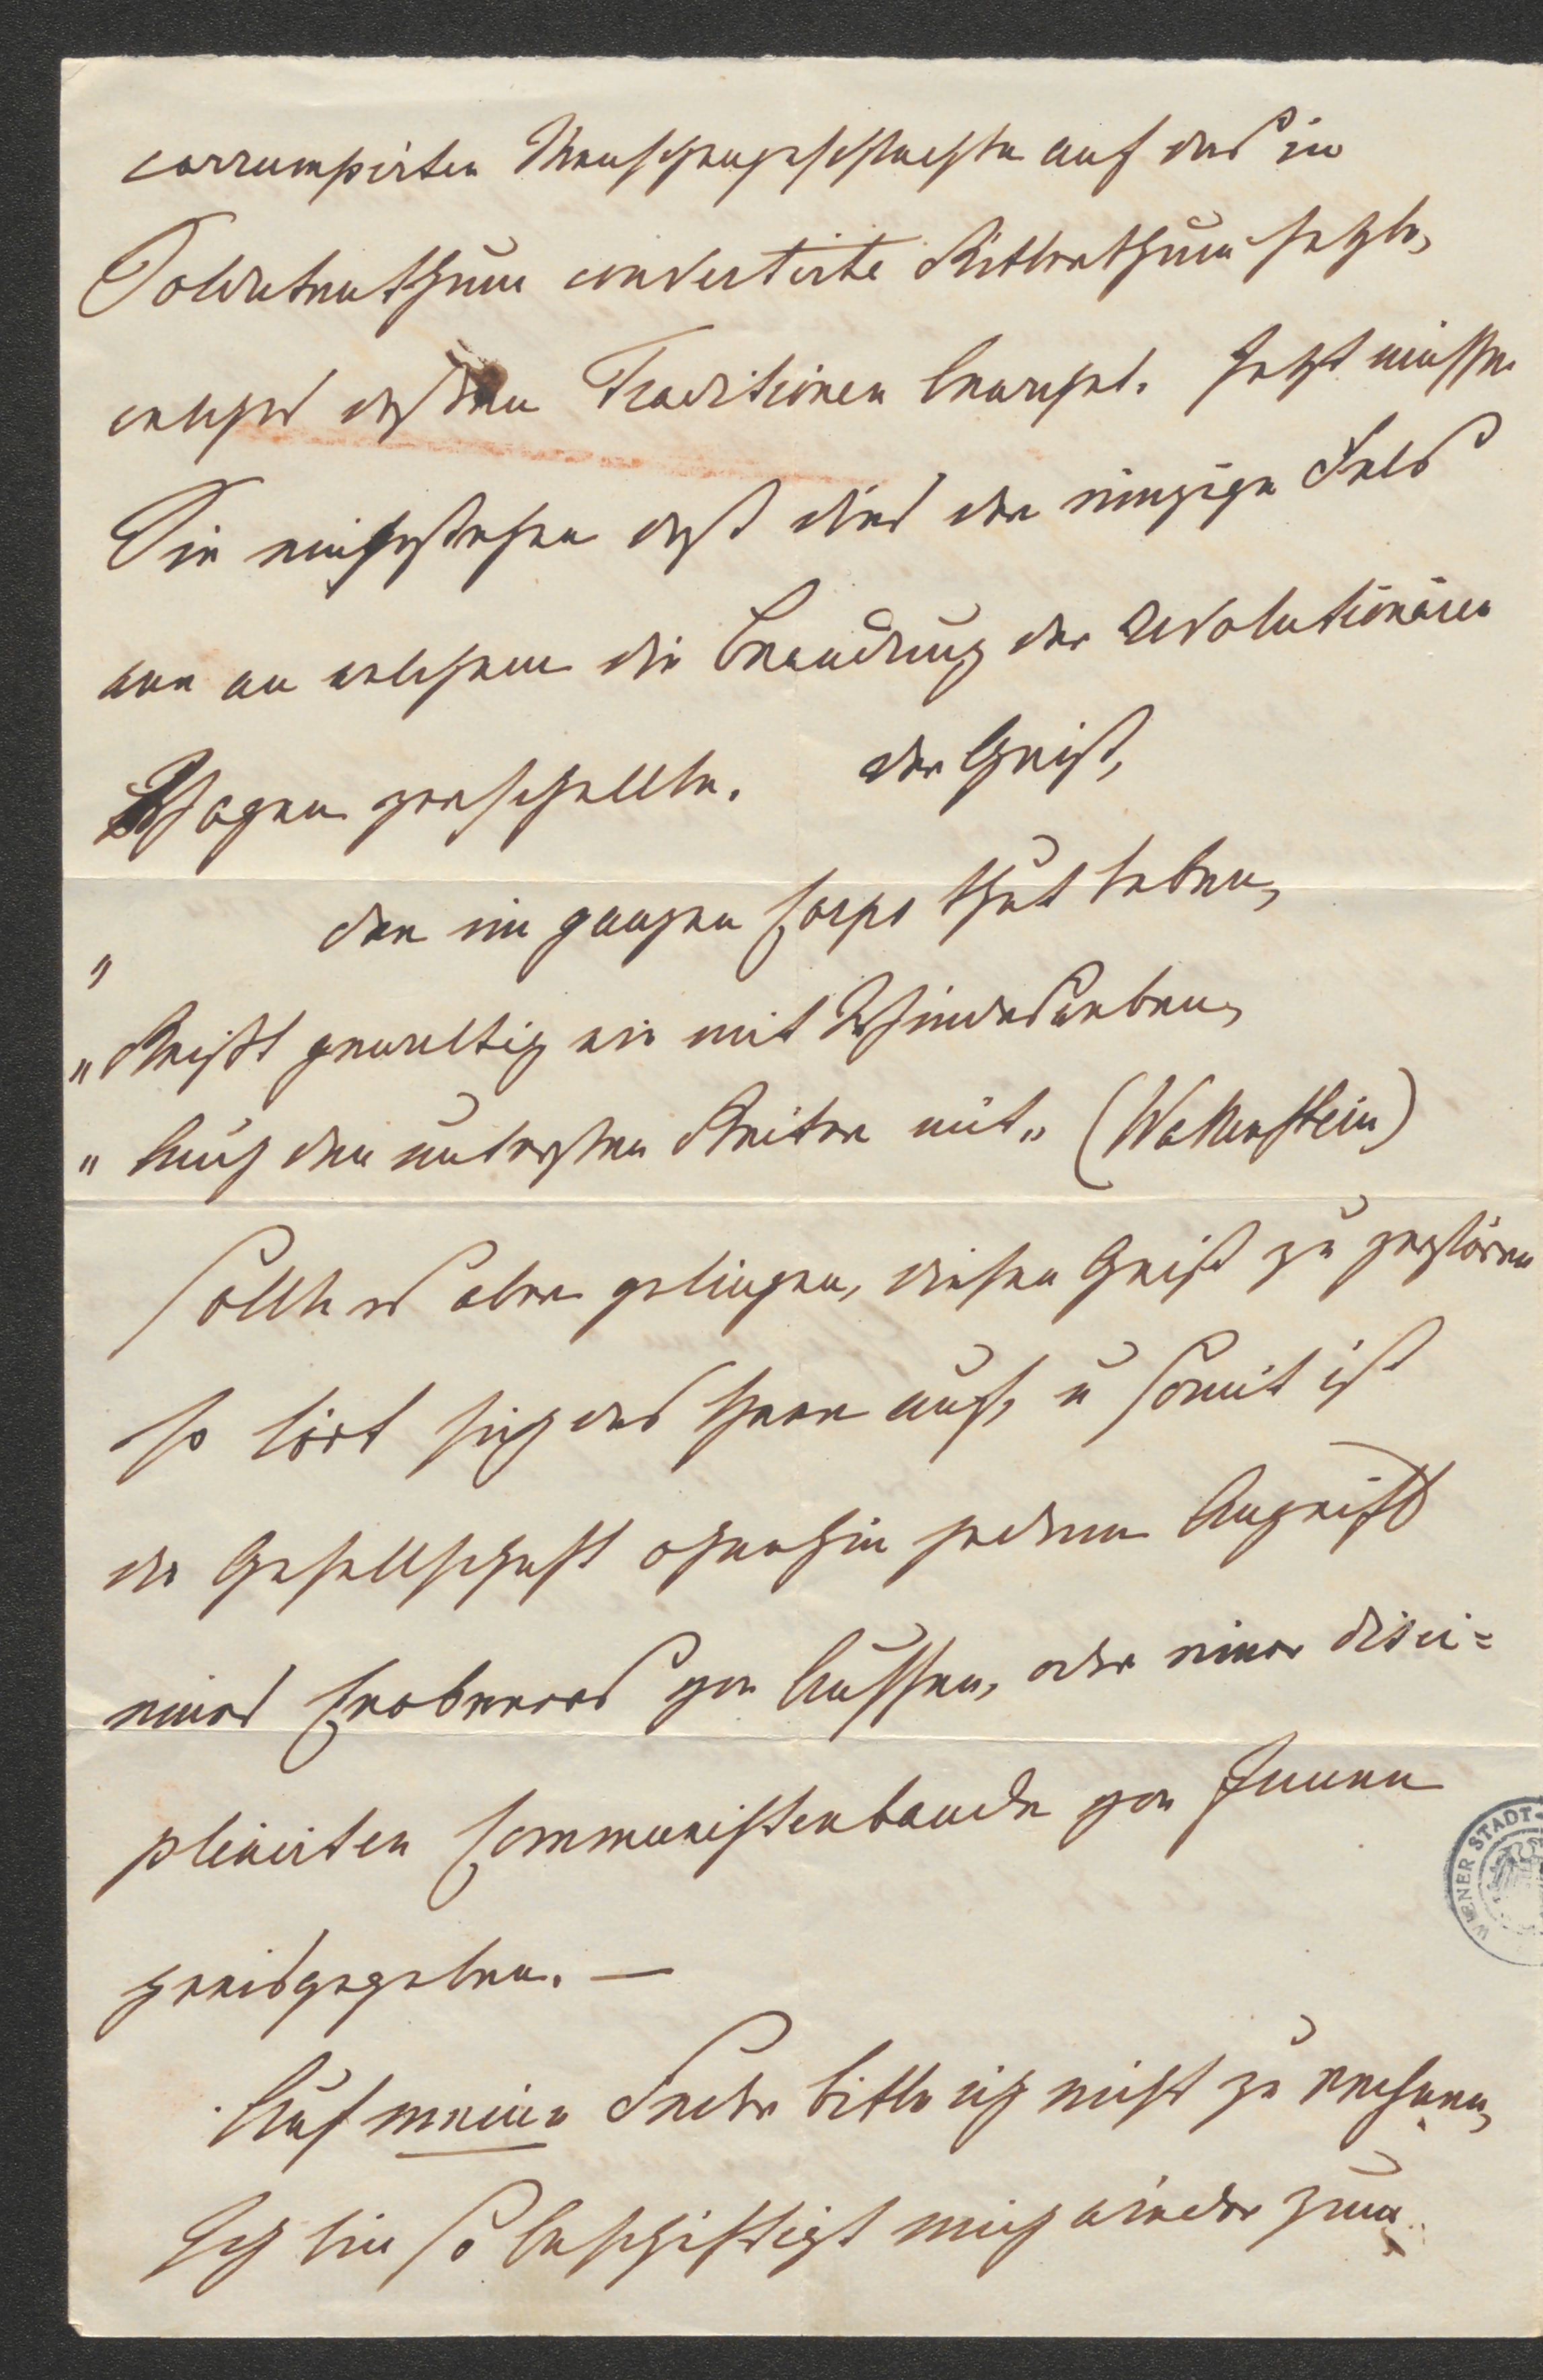 corrumpirten Menschengeschlechte auf das in
Soldatenthum convertirte Ritterthum setzte,
welches dessen Traditionen bewahrt. Jetzt müssen
Sie eingestehen daß dies der einzige Fels
war an welchem die Brandung der revolutionären
Wogen zerschellte. der Geist,
„ der im ganzen Corps thut leben,
„ Reißt gewaltig wie mit Windesweben,
„ Auch den untersten Reiter mit„ (Wallenstein)
Sollte es aber gelingen, diesen Geist zu zerstören
so löst sich das Heer auf, u somit ist
die Gesellschaft ohnehin jedem Angriff
eines Eroberers von Aussen, oder einer disci=
plinirten Communistenbande von Innen
preisgegeben. —
Auf meine Feder bitte ich nicht zu rechnen,
Ich bin so beschäftigt mich wieder zum
WIENER STADT-